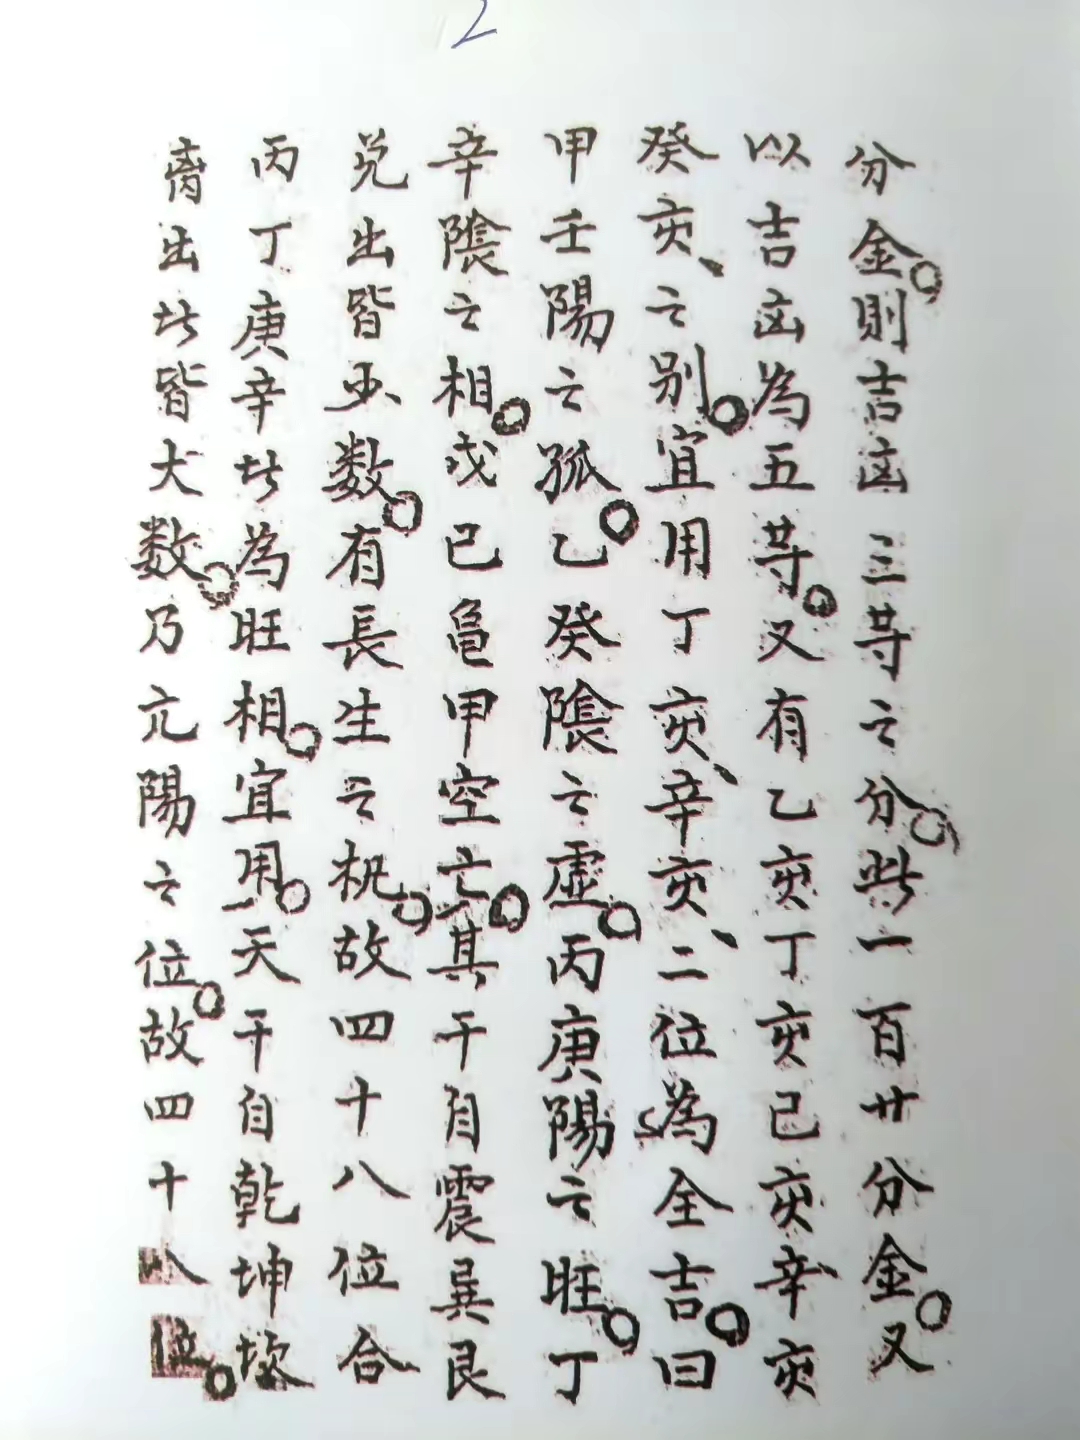 2
分金。則吉凶三等之分。此一百廿分金。又
以吉凶為五等。又有乙亥丁亥己亥辛亥
癸亥、之别。宜用丁亥、辛亥、二位為全吉。曰
甲壬陽之孤。乙癸陰之虛。丙庚陽之旺。丁
辛陰之相。戊己龜甲空亡。其干自震巽艮
兑出皆少数。有長生之机。故四十八位合
丙丁庚辛此為旺相。宜用。天干自乾坤坎
离出此皆大数。乃亢陽之位。故四十八位。